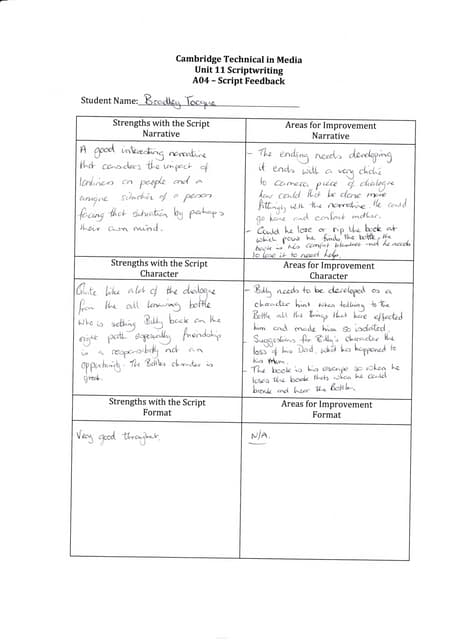 Cambridge Technical in Media
Unit 11 Scriptwriting
A04 – Script Feedback
Student Name: Bradley
Strengths with the Script
Narrative
A good interesting narrative
that considers the impact of
lonliness on people and a
unique situation of a person
facing that situation by perhaps
their own mind.
Areas for Improvement
Narrative
- The ending needs developing
it ends with a very cliche
to camera piece of dialogue
how could that be done more
fittingly with the narrative. He could
go home and confront mother.
- Could he lose or rip the book at
which point he finds the bottle, the
book is his comfort and he needs
to lose it to need help.
Strengths with the Script
Character
Quite like alot of the dialogue
from the all knowing bottle
who is setting Billy back on the
right path especially friendship
is a responsibility not an
opportunity. The Bottles character is
great.
Areas for Improvement
Character
- Billy needs to be developed as a
character hint when talking to the
Bottle all the things that have effected
him and made him so isolated.
Suggestions for Billy's character the
loss of his Dad, what has happened to
his Mum.
- The book is his escape so when he
loses the book thats when he could
break and hear the Bottle.
Strengths with the Script
Format
Very good throughout
Areas for Improvement
Format
N/A.